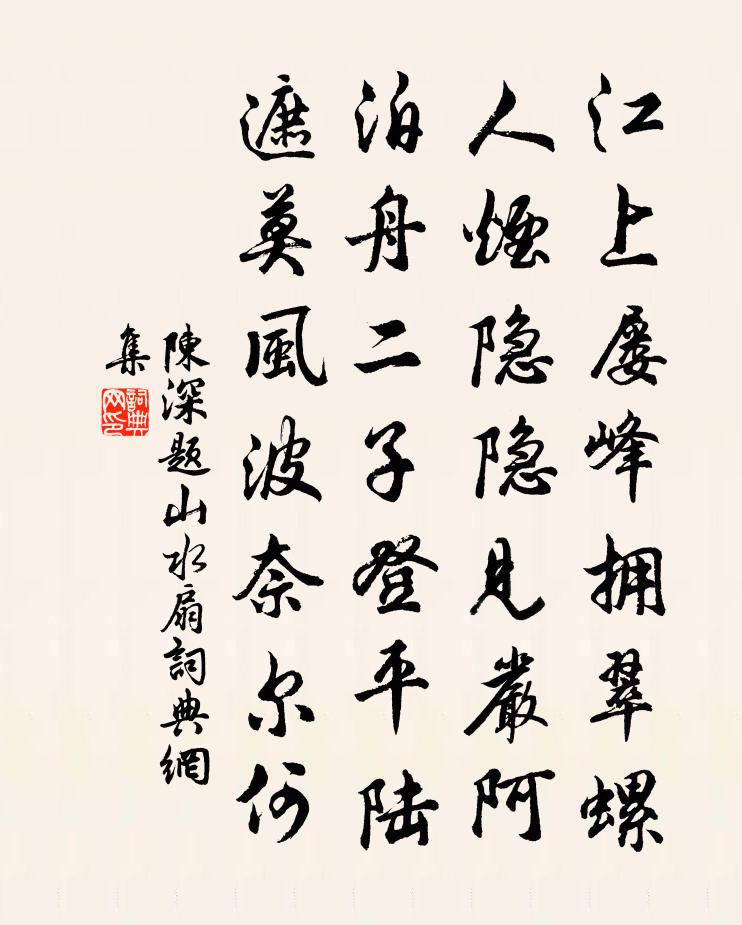 江上屡峰拥翠螺
人煙隐隐見嚴阿
泊舟二子登平陆
遮莫風波奈尔何
陳深题山水扇詞典網
集
詞典网印